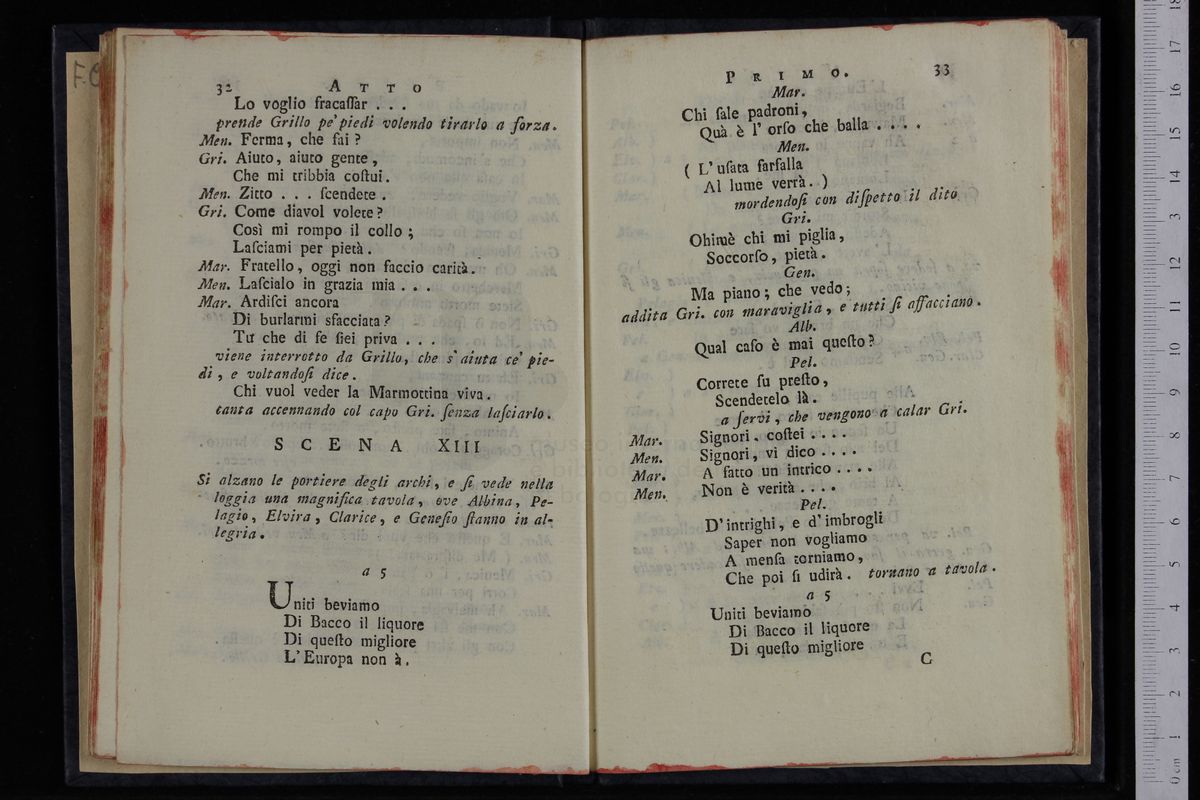 32 ATTO
Lo voglio fracaſſar . . .
prende Grillo pe' piedi volendo tirarlo a forza.
Men. Ferma, che fai ?
Gri. Aiuto, aiuto gente,
Che mi tribbia coſtui.
Men. Zitto . . . ſcendete .
Gri. Come diavol volete?
Così mi rompo il collo ;
Laſciami per pietà.
Mar. Fratello, oggi non faccio carità.
Men. Laſcialo in grazia mia . . .
Mar. Ardiſci ancora
Di burlarmi sfacciata ?
Tu che di fe ſiei priva . . .
viene interrotto da Grillo, che s' aiuta ce' pie-
di , e voltandoſi dice .
Chi vuol veder la Marmottina viva.
canta accennando col capo Gri. ſenza laſciarlo.
SCENA XIII
Si alzano le portiere degli archi, e ſi vede nella
loggia una magnifica tavola, ove Albina, Pe-
lagio, Elvira, Clarice, e Geneſio ſtanno in al-
legria.
a 5
Uniti beviamo
Di Bacco il liquore
Di queſto migliore
L' Europa non à.
PRIMO. 33
Mar.
Chi ſale padroni,
Quà è l' orſo che balla . . . .
Men.
( L' uſata farfalla
Al lume verrà. )
mordendoſi con diſpetto il dito
Gri.
Ohimè chi mi piglia,
Soccorſo, pietà.
Gen.
Ma piano ; che vedo ;
addita Gri. con maraviglia, e tutti ſi affacciano.
Alb.
Qual caſo è mai queſto ?
Pel.
Correte ſu preſto,
Scendetelo là.
a ſervi, che vengono a calar Gri.
Mar. Signori. coſtei . . . .
Men. Signori, vi dico . . . .
Mar. A fatto un intrico . . . .
Men. Non è verità . . . .
Pel.
D' intrighi, e d' imbrogli
Saper non vogliamo
A menſa torniamo,
Che poi ſi udirà. tornano a tavola.
a 5
Uniti beviamo
Di Bacco il liquore
Di queſto migliore
C